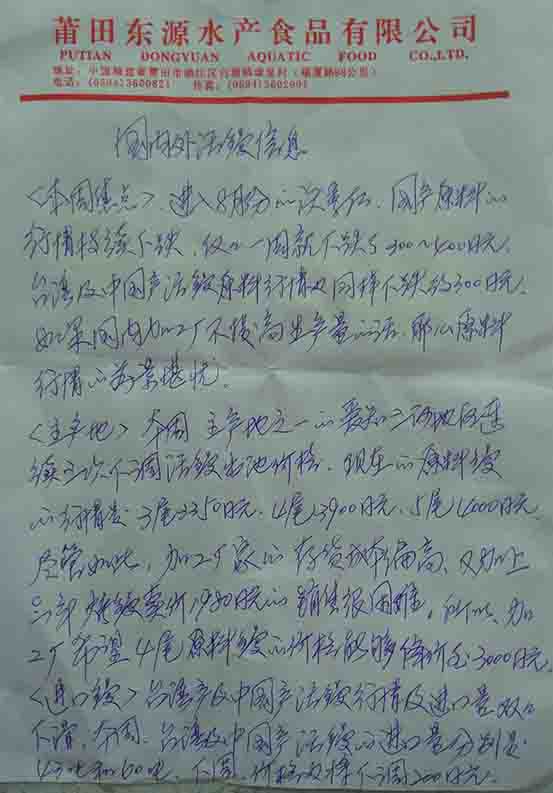 莆田东源水产食品有限公司
PUTIAN DONGYUAN AQUATIC FOOD CO.,LTD.
电话：(0594)3600821 传真：(0594)3602001
国内外活鳗信息
<本周焦点> 进入8月份的决季后，国产原料的
行情持续下跌，仅仅一周就下跌了300~400日元，
台湾及中国产活鳗原料行情也同样下跌约300日元，
如果国内加工厂不提高生产量的话，那么原料
行情的前景堪忧。
<主产地> 本周主产地之一的爱知三河地区连
续三次下调活鳗出池价格，现在的原料鳗
的行情是：3尾3350日元、4尾3900日元、5尾4000日元
尽管如此，加工厂家的存货成本偏高、又加上
烤鳗卖价1980日元的销售很困难，所以，加
工厂希望4尾原料鳗的价格能够降价至3000日元
<进口鳗> 台湾产及中国产活鳗行情及进口量双双
下滑，本周，台湾及中国产活鳗的进口量分别是
43吨和60吨，下周，价格同样下调200日元。